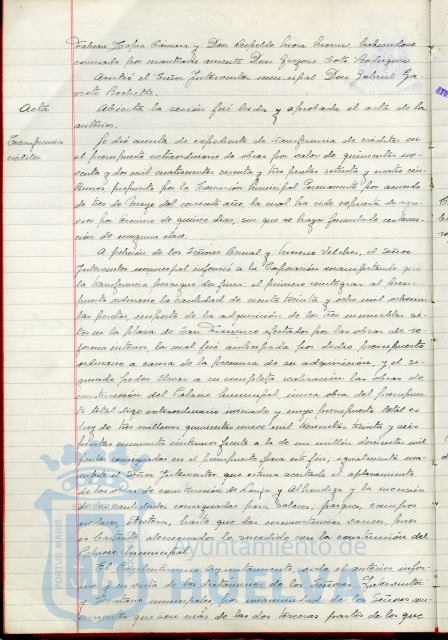 Fabian Tapia Cámara y Don Rodolfo Mora Mora, habiéndose
excusado por encontrarse ausente Don Gregorio Soto Rodríguez
Asistió el Señor Interventor municipal Don Gabriel Ga-
Acta
Abierta la sesión fué leida y aprobada el acta de la
anterior.
Transferencia
créditos
Se dió cuenta de expediente de transferencia de créditos en
el presupuesto extraordinario de obras por valor de quinientas no-
venta y dos mil cuatrocientas noventa y tres pesetas setenta y cuatro cén-
timos propuesto por la Comisión Municipal Permanente por acuerdo
de tres de Mayo del corriente año, la cual ha sido expuesta de
por término de quince dias, sin que se haya formulado reclama-
ción de ninguna clase.
A petición de los Señores Bernal y Moreno Vélchez, el Señor
Interventor municipal informó a la Corporación manifestando que
la transferencia persigue dos fines: el primero reintegrar al presu-
puesto ordinario la cantidad de ciento treinta y ocho mil ochocien-
tas pesetas, importe de la adquisición de los tres inmuebles si-
tos en la plaza de San Francisco afectados por las obras de re-
forma interior, la cual fué anticipada por dicho presupuesto
ordinario a causa de la premura de su adquisición, y el se-
gundo poder llevar a su completa realización las obras de
construcción del Palacio Municipal, unica obra del presupues-
to total digo extraordinario iniciada y cuyo presupuesto total es
hoy de tres millones quinientas nueve mil treinta y seis
pesetas céntimos frente a la de un millón doscientas mil
pesetas consignadas en el presupuesto para este fin; igualmente ma-
nifestó el Señor Interventor que estima acertado el aplazamiento
de las obras de construcción de Lonja y Alhondiga y la inversión
de las cantidades consignadas para Solares, parques, campos
etcétera, hasta que las circunstancias varien, pues
es bastante aleccionador lo sucedido con la construcción del
Palacio Municipal.
El Excelentísimo Ayuntamiento, oido el anterior infor-
me y en vista de los dictámenes de los Señores Interventor
y Secretario municipales por unanimidad de los Señores con-
currentes que son más de las dos terceras partes de los que
Ayuntamiento de
HUELVA
PORTUS MARIS